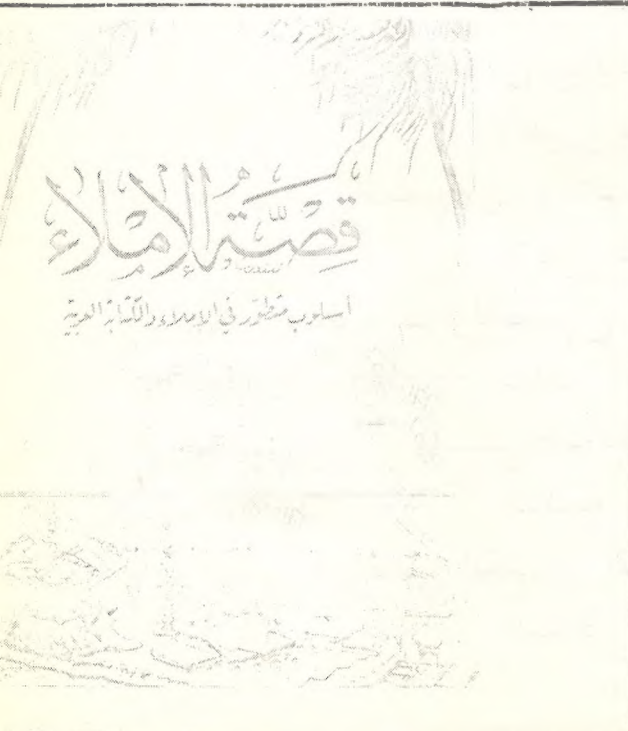 قصة الإملاء
أسلوب متطور في الإملاء والكتابة العربية